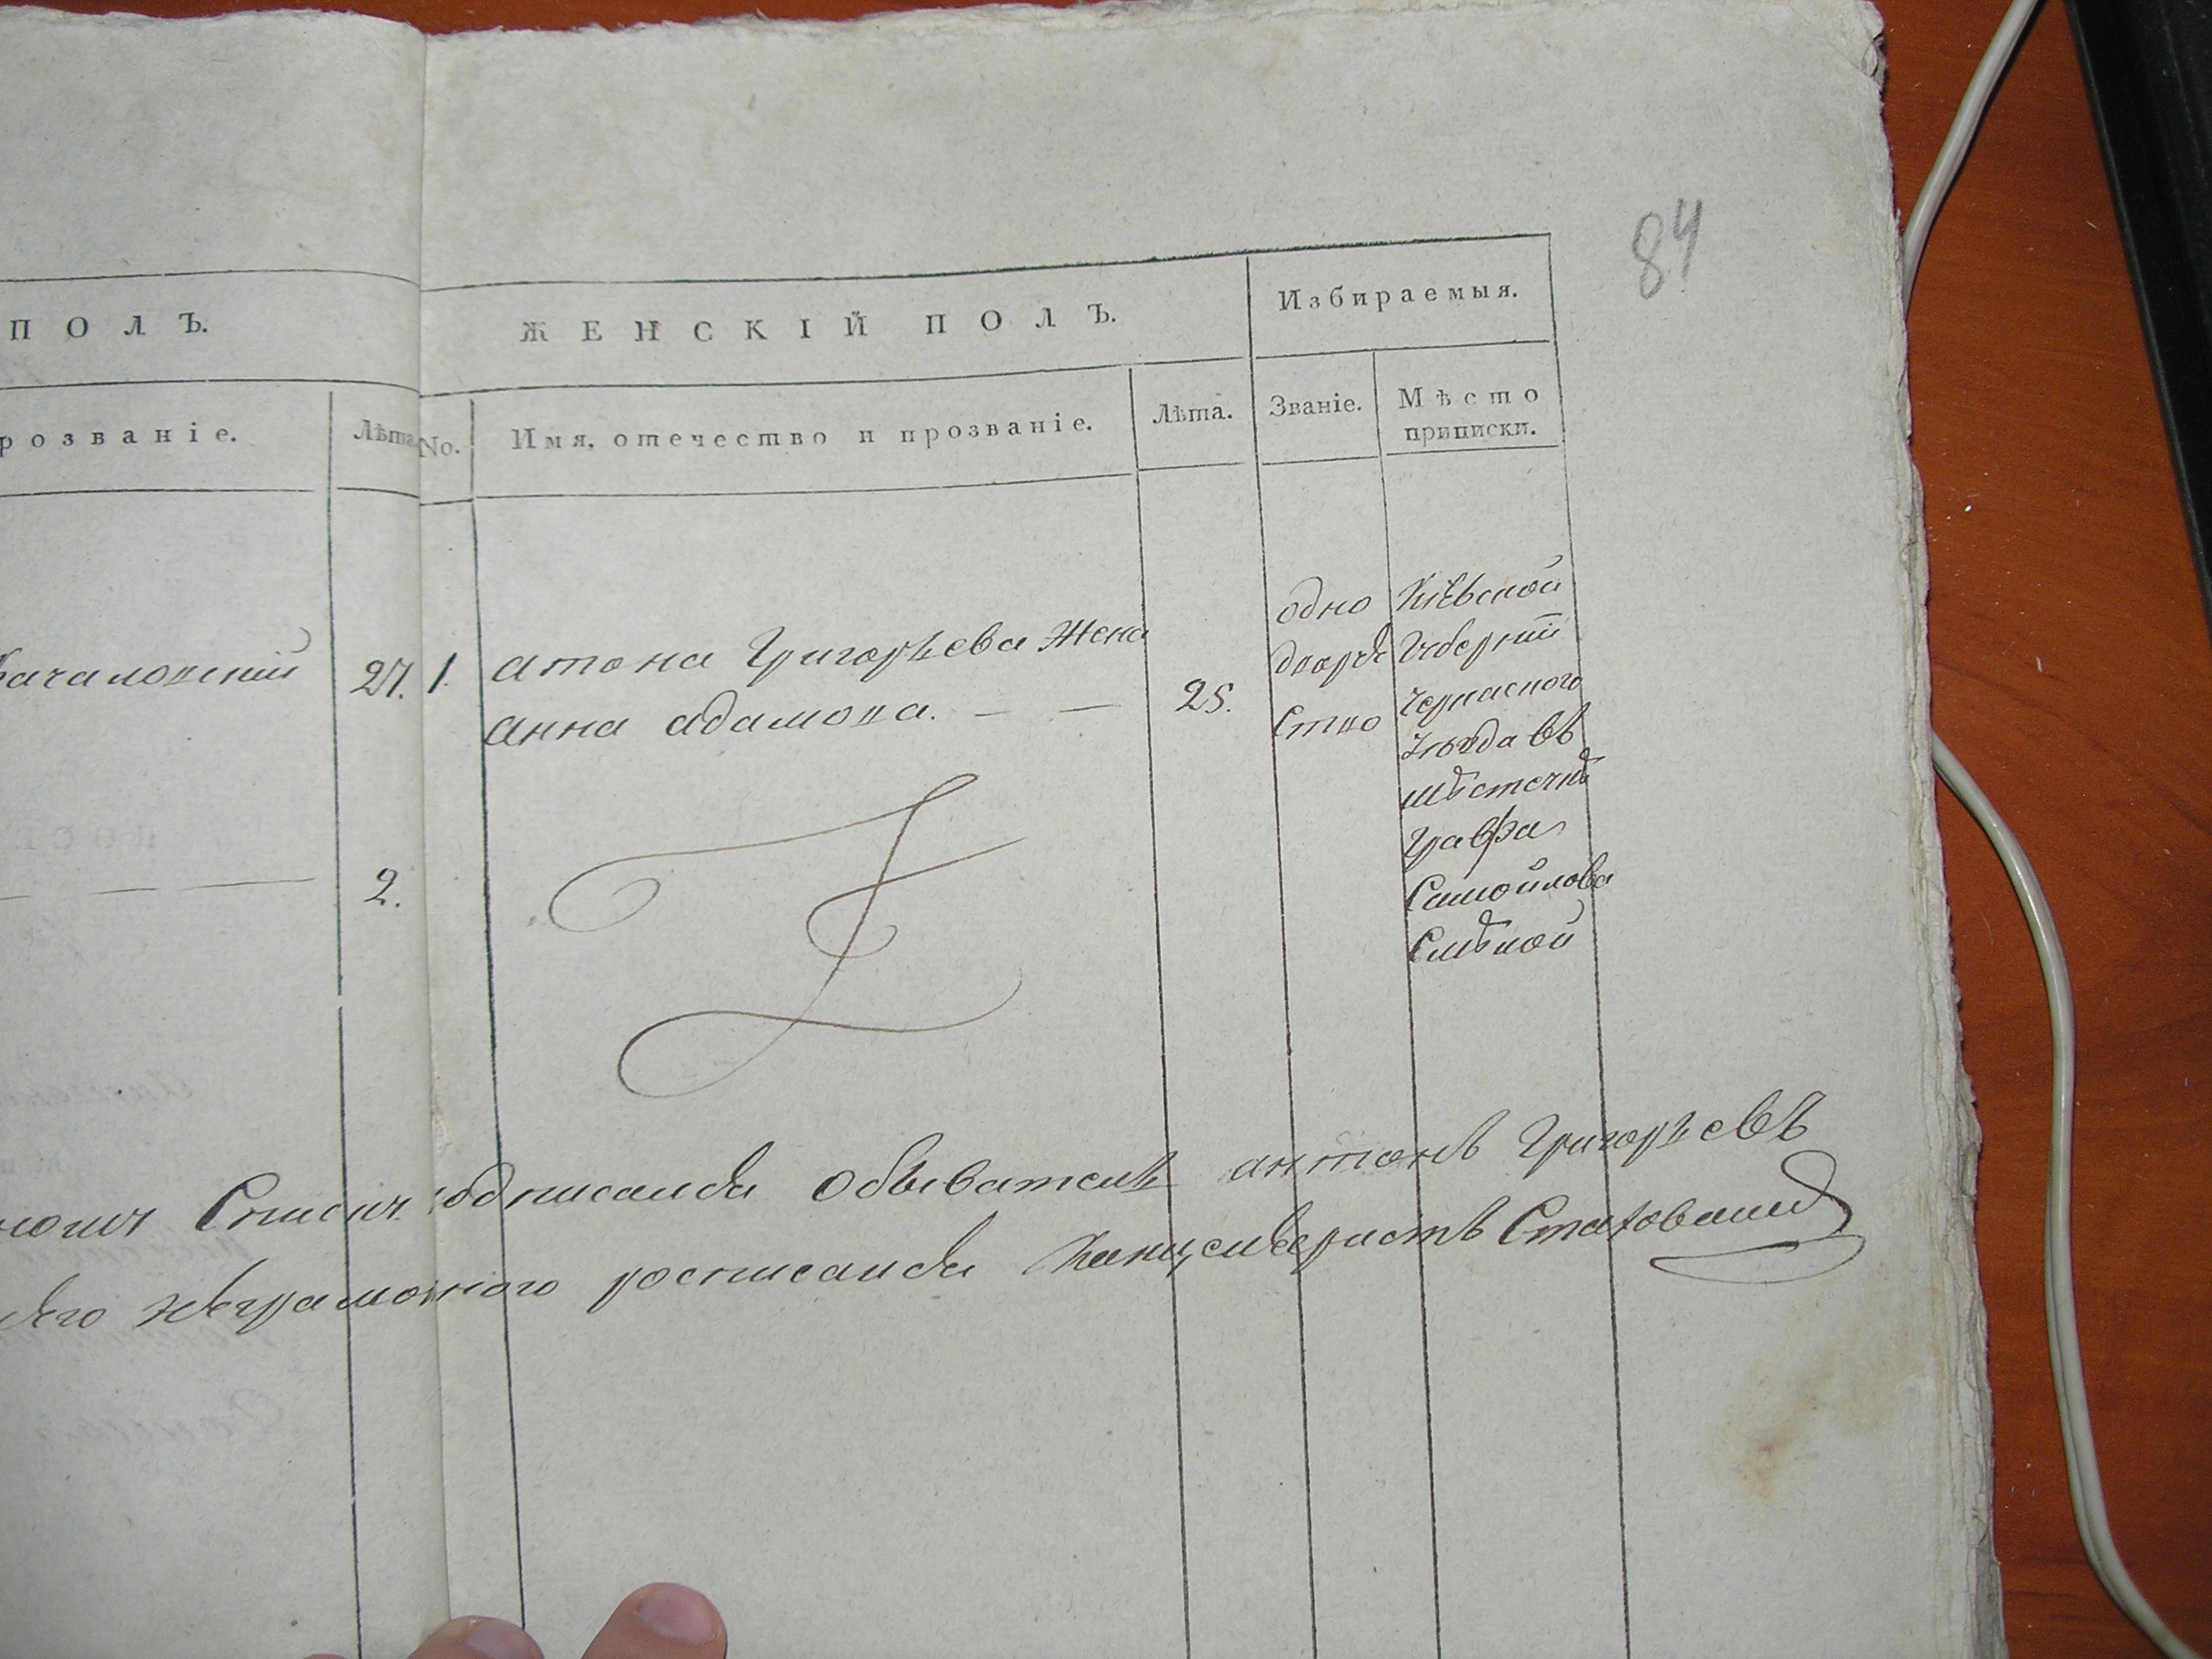 84
ПОЛЪ.
ЖЕНСКІЙ ПОЛЪ.
Избираемыя.
розваніе.
Лѣта
No.
Имя, отечество и прозваніе.
Лѣта.
Званіе.
Мѣсто
приписки.
27.
1.
атона Григорьева Жена
анна адамова. — —
25.
одно
двор
ство
Кіевской
Губерніи
Черкаского
уѣзда въ
мѣстечкѣ
Графа
Самойлова
Смѣлой
— —
2.
Списк подписался обыватель антонъ Григорьевъ
его неграмотного росписался Канцеляристъ